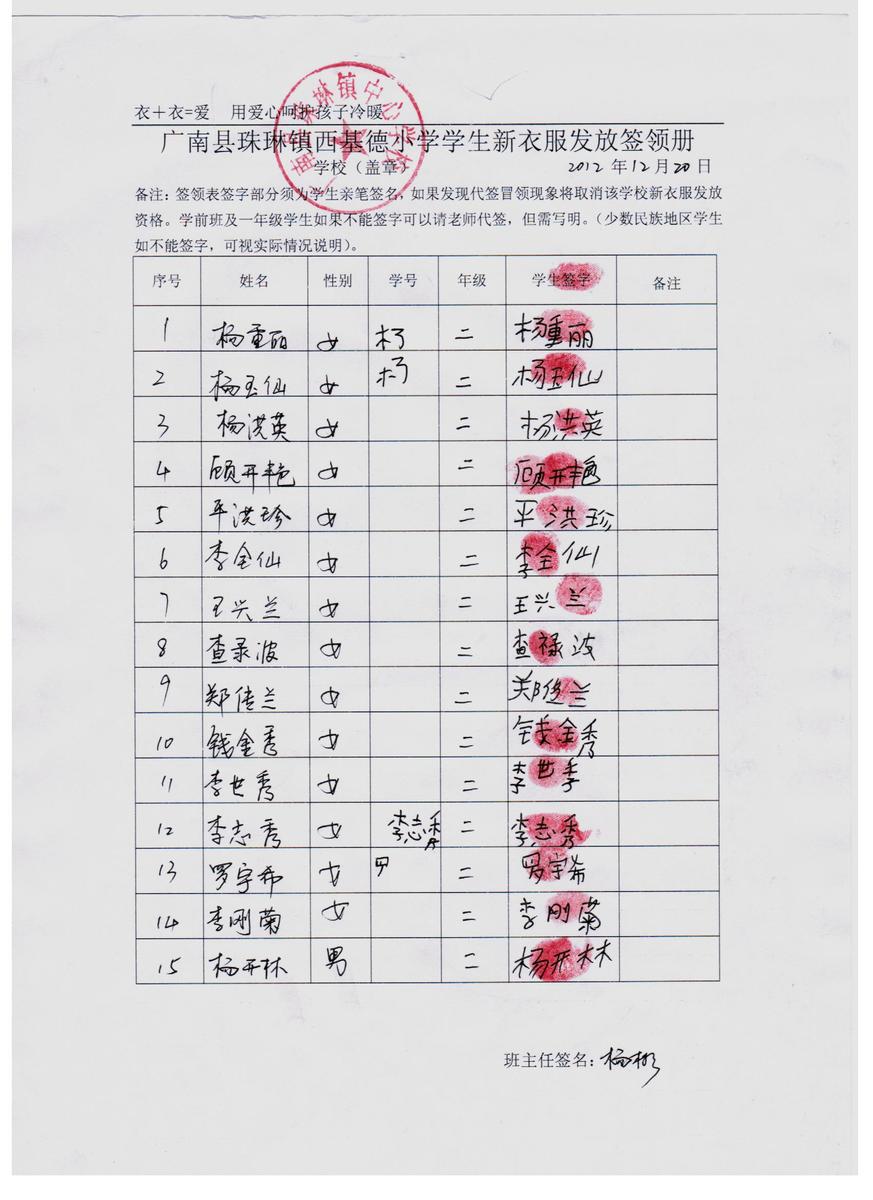 衣＋衣=爱 用爱心呵护孩子冷暖
广南县珠琳镇西基德小学学生新衣服发放签领册
学校（盖章） 2012 年 12 月 20 日
备注：签领表签字部分须为学生亲笔签名，如果发现代签冒领现象将取消该学校新衣服发放
资格。学前班及一年级学生如果不能签字可以请老师代签，但需写明。（少数民族地区学生
如不能签字，可视实际情况说明）。
序号 姓名 性别 学号 年级 学生签字 备注
1 杨重丽 女 二 杨重丽
2 杨玉仙 女 二 杨玉仙
3 杨洪英 女 二 杨洪英
4 顾开艳 女 二 顾开艳
5 平洪珍 女 二 平洪珍
6 李全仙 女 二 李全仙
7 王兴兰 女 二 王兴兰
8 查录波 女 二 查禄波
9 郑传兰 女 二 郑传兰
10 钱金秀 女 二 钱金秀
11 李世秀 女 二 李世季
12 李志秀 女 李志秀 二 李志秀
13 罗宇希 女 罗 二 罗宇希
14 李刚菊 女 二 李刚菊
15 杨开林 男 二 杨开林
班主任签名：杨彬